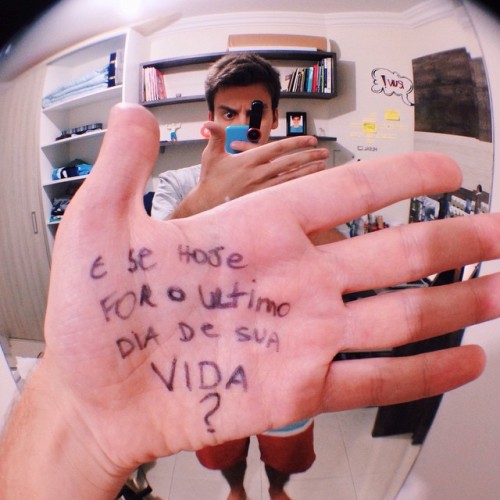 E SE HOJE
FOR O ULTIMO
DIA DE SUA
VIDA
?